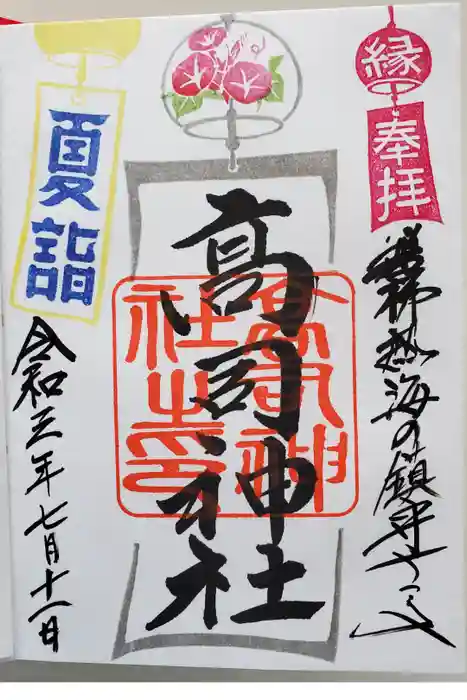 縁
奉拝
磐梯熱海の鎮守
高司神社
高司神社之印
夏詣
令和三年七月十一日